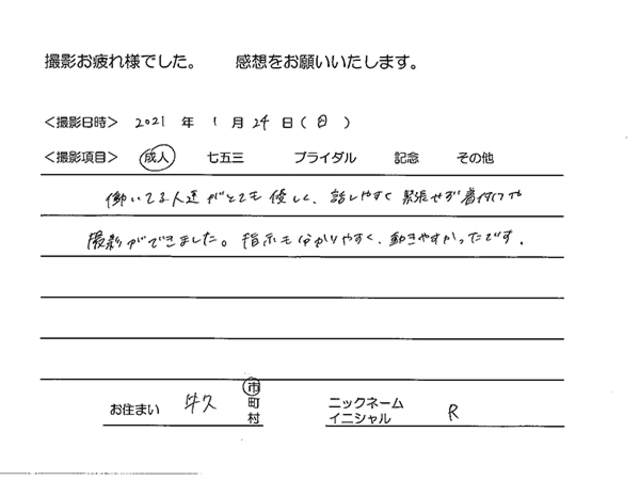 撮影お疲れ様でした。 感想をお願いいたします。
<撮影日時> 2021 年 1 月 24 日(日)
<撮影項目> 成人 七五三 ブライダル 記念 その他
働いてる人達がとても優しく、話しやすく緊張せず着付けや
撮影ができました。指示も分かりやすく、動きやすかったです。
お住まい 牛久 市町村
ニックネーム イニシャル R